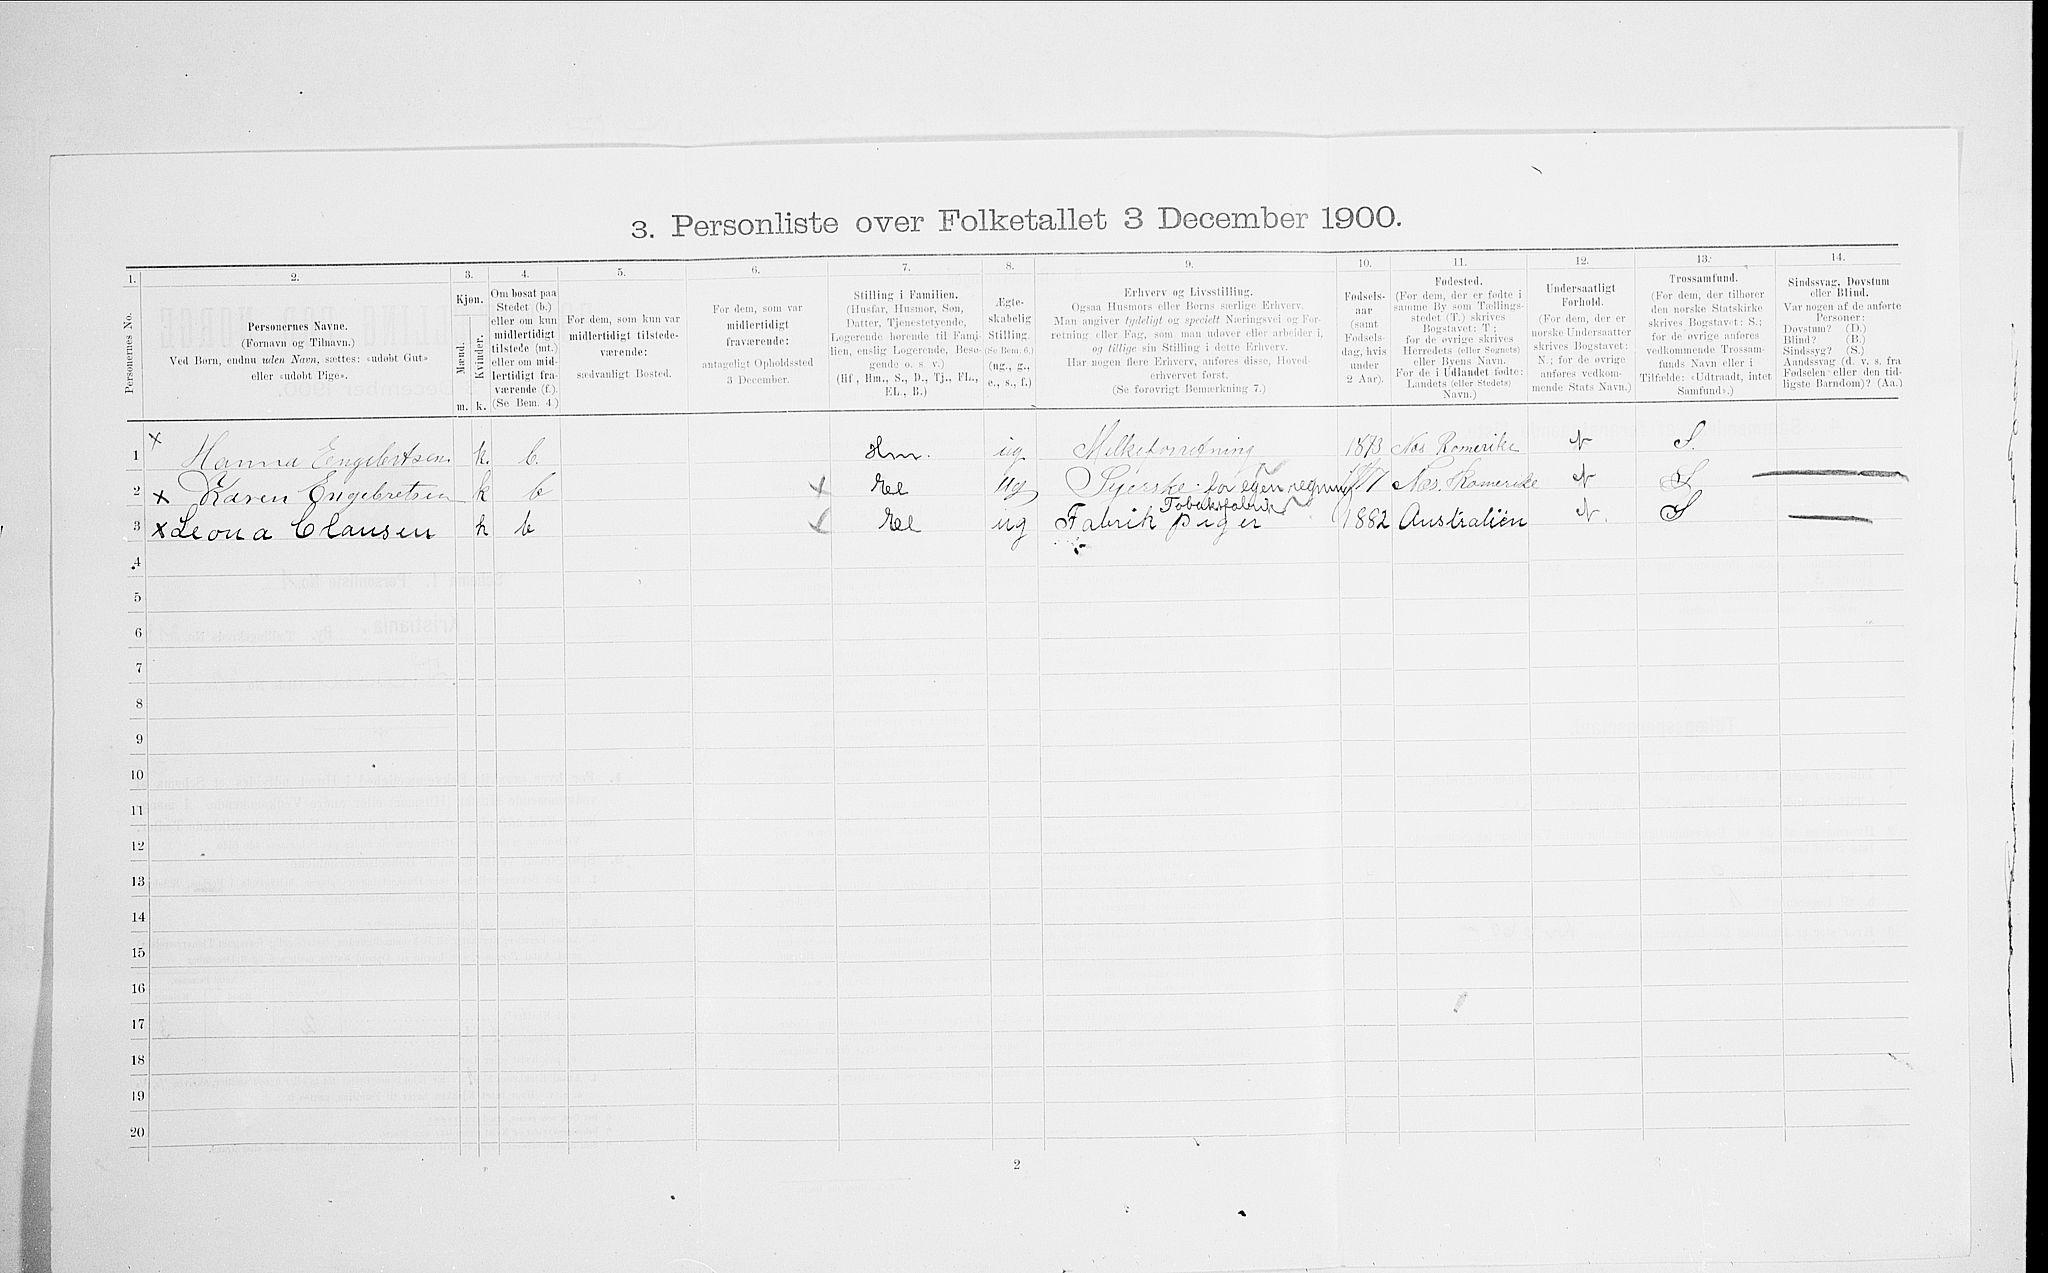 3. Personliste over Folketallet 3 December 1900.
1. 2. 3. 4. 5. 6. 7. 8. 9. 10. 11. 12. 13. 14.
Personernes No.
Personernes Navne.
(Fornavn og Tilnavn.)
Ved Børn, endnu uden Navn, sættes: «udøbt Gut»
eller «udøbt Pige».
Kjøn.
Mænd.
Kvinder.
m. k.
Om bosat paa
Stedet (b.)
eller om kun
midlertidigt
tilstede (mt.)
eller om mid-
lertidigt fra-
værende (f.).
(Se Bem. 4.)
For dem, som kun var
midlertidigt tilstede-
værende:
sædvanligt Bosted.
For dem, som var
midlertidigt
fraværende:
antageligt Opholdssted
3 December.
Stilling i Familien.
(Husfar, Husmor, Søn,
Datter, Tjenestetyende,
Logerende hørende til Fami-
lien, enslig Logerende, Besø-
gende o. s. v.)
(Hf., Hm., S., D., Tj., FL.,
EL., B.)
Ægte-
skabelig
Stilling.
(Se Bem. 6.)
(ug., g.,
e., s., f.)
Erhverv og Livsstilling.
Ogsaa Husmors eller Børns særlige Erhverv.
Man angiver tydeligt og specielt Næringsvei og For-
retning eller Fag, som man udøver eller arbeider i,
og tillige sin Stilling i dette Erhverv.
Har nogen flere Erhverv, anføres disse, Hoved-
erhvervet først.
(Se forøvrigt Bemærkning 7.)
Fødsels-
aar
(samt
Fødsels-
dag, hvis
under
2 Aar).
Fødested.
(For dem, der er fødte i
samme By som Tællings-
stedet (T.) skrives
Bogstavet: T;
for de øvrige skrives
Herredets (eller Sognets)
eller Byens Navn.
For de i Udlandet fødte:
Landets (eller Stedets)
Navn.)
Undersaatligt
Forhold.
(For dem, der er
norske Undersaatter
skrives Bogstavet:
N.; for de øvrige
anføres vedkom-
mende Stats Navn.)
Trossamfund.
(For dem, der tilhører
den norske Statskirke
skrives Bogstavet: S.;
for de øvrige anføres
vedkommende Trossam-
funds Navn eller i
Tilfælde: «Udtraadt, intet
Samfund».)
Sindssvag, Døvstum
eller Blind.
Var nogen af de anførte
Personer:
Døvstum? (D.)
Blind? (B.)
Sindssyg? (S.)
Aandssvag (d. v. s. fra
Fødselen eller den tid-
ligste Barndom)? (Aa.)
1 x Hanna Engebertsen k. b. Hm. ug Melkeforretning 1873 Næs Romerike N S.
2 x Karen Engebretsen k b x El ug Syerske for egen regning Næs. Romerike N S
Tobaksfabrik
3 x Leona Clausen k b x El ug Fabrik piger 1882 Australien N. S
4
5
6
7
8
9
10
11
12
13
14
15
16
17
18
19
20
2